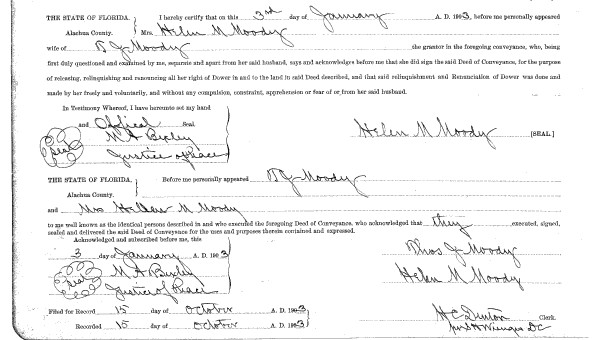 THE STATE OF FLORIDA. I hereby certify that on this 3rd day of January A. D. 1903, before me personally appeared
Alachua County. Mrs. Helen M Moody
wife of T J Moody the grantor in the foregoing conveyance, who, being
first duly questioned and examined by me, separate and apart from her said husband, says and acknowledges before me that she did sign the said Deed of Conveyance, for the purpose
of releasing, relinquishing and renouncing all her right of Dower in and to the land in said Deed described, and that said relinquishment and Renunciation of Dower was done and
made by her freely and voluntarily, and without any compulsion, constraint, apprehension or fear of or from her said husband.
In Testimony Whereof, I have hereunto set my hand
and Official Seal.
Seal M A Helen M Moody [SEAL]
Justice of Peace
THE STATE OF FLORIDA. Before me personally appeared T J Moody
Alachua County.
and Mrs Helen M Moody
to me well known as the identical persons described in and who executed the foregoing Deed of Conveyance, who acknowledged that they executed, signed,
sealed and delivered the said Deed of Conveyance for the uses and purposes therein contained and expressed.
Acknowledged and subscribed before me, this
3 day of January A. D. 1903 Thos J Moody
Seal M A Helen M Moody
Justice of Peace
Filed for Record 15 day of October A. D. 1903 H C Denton Clerk.
Recorded 15 day of October A. D. 1903 DC